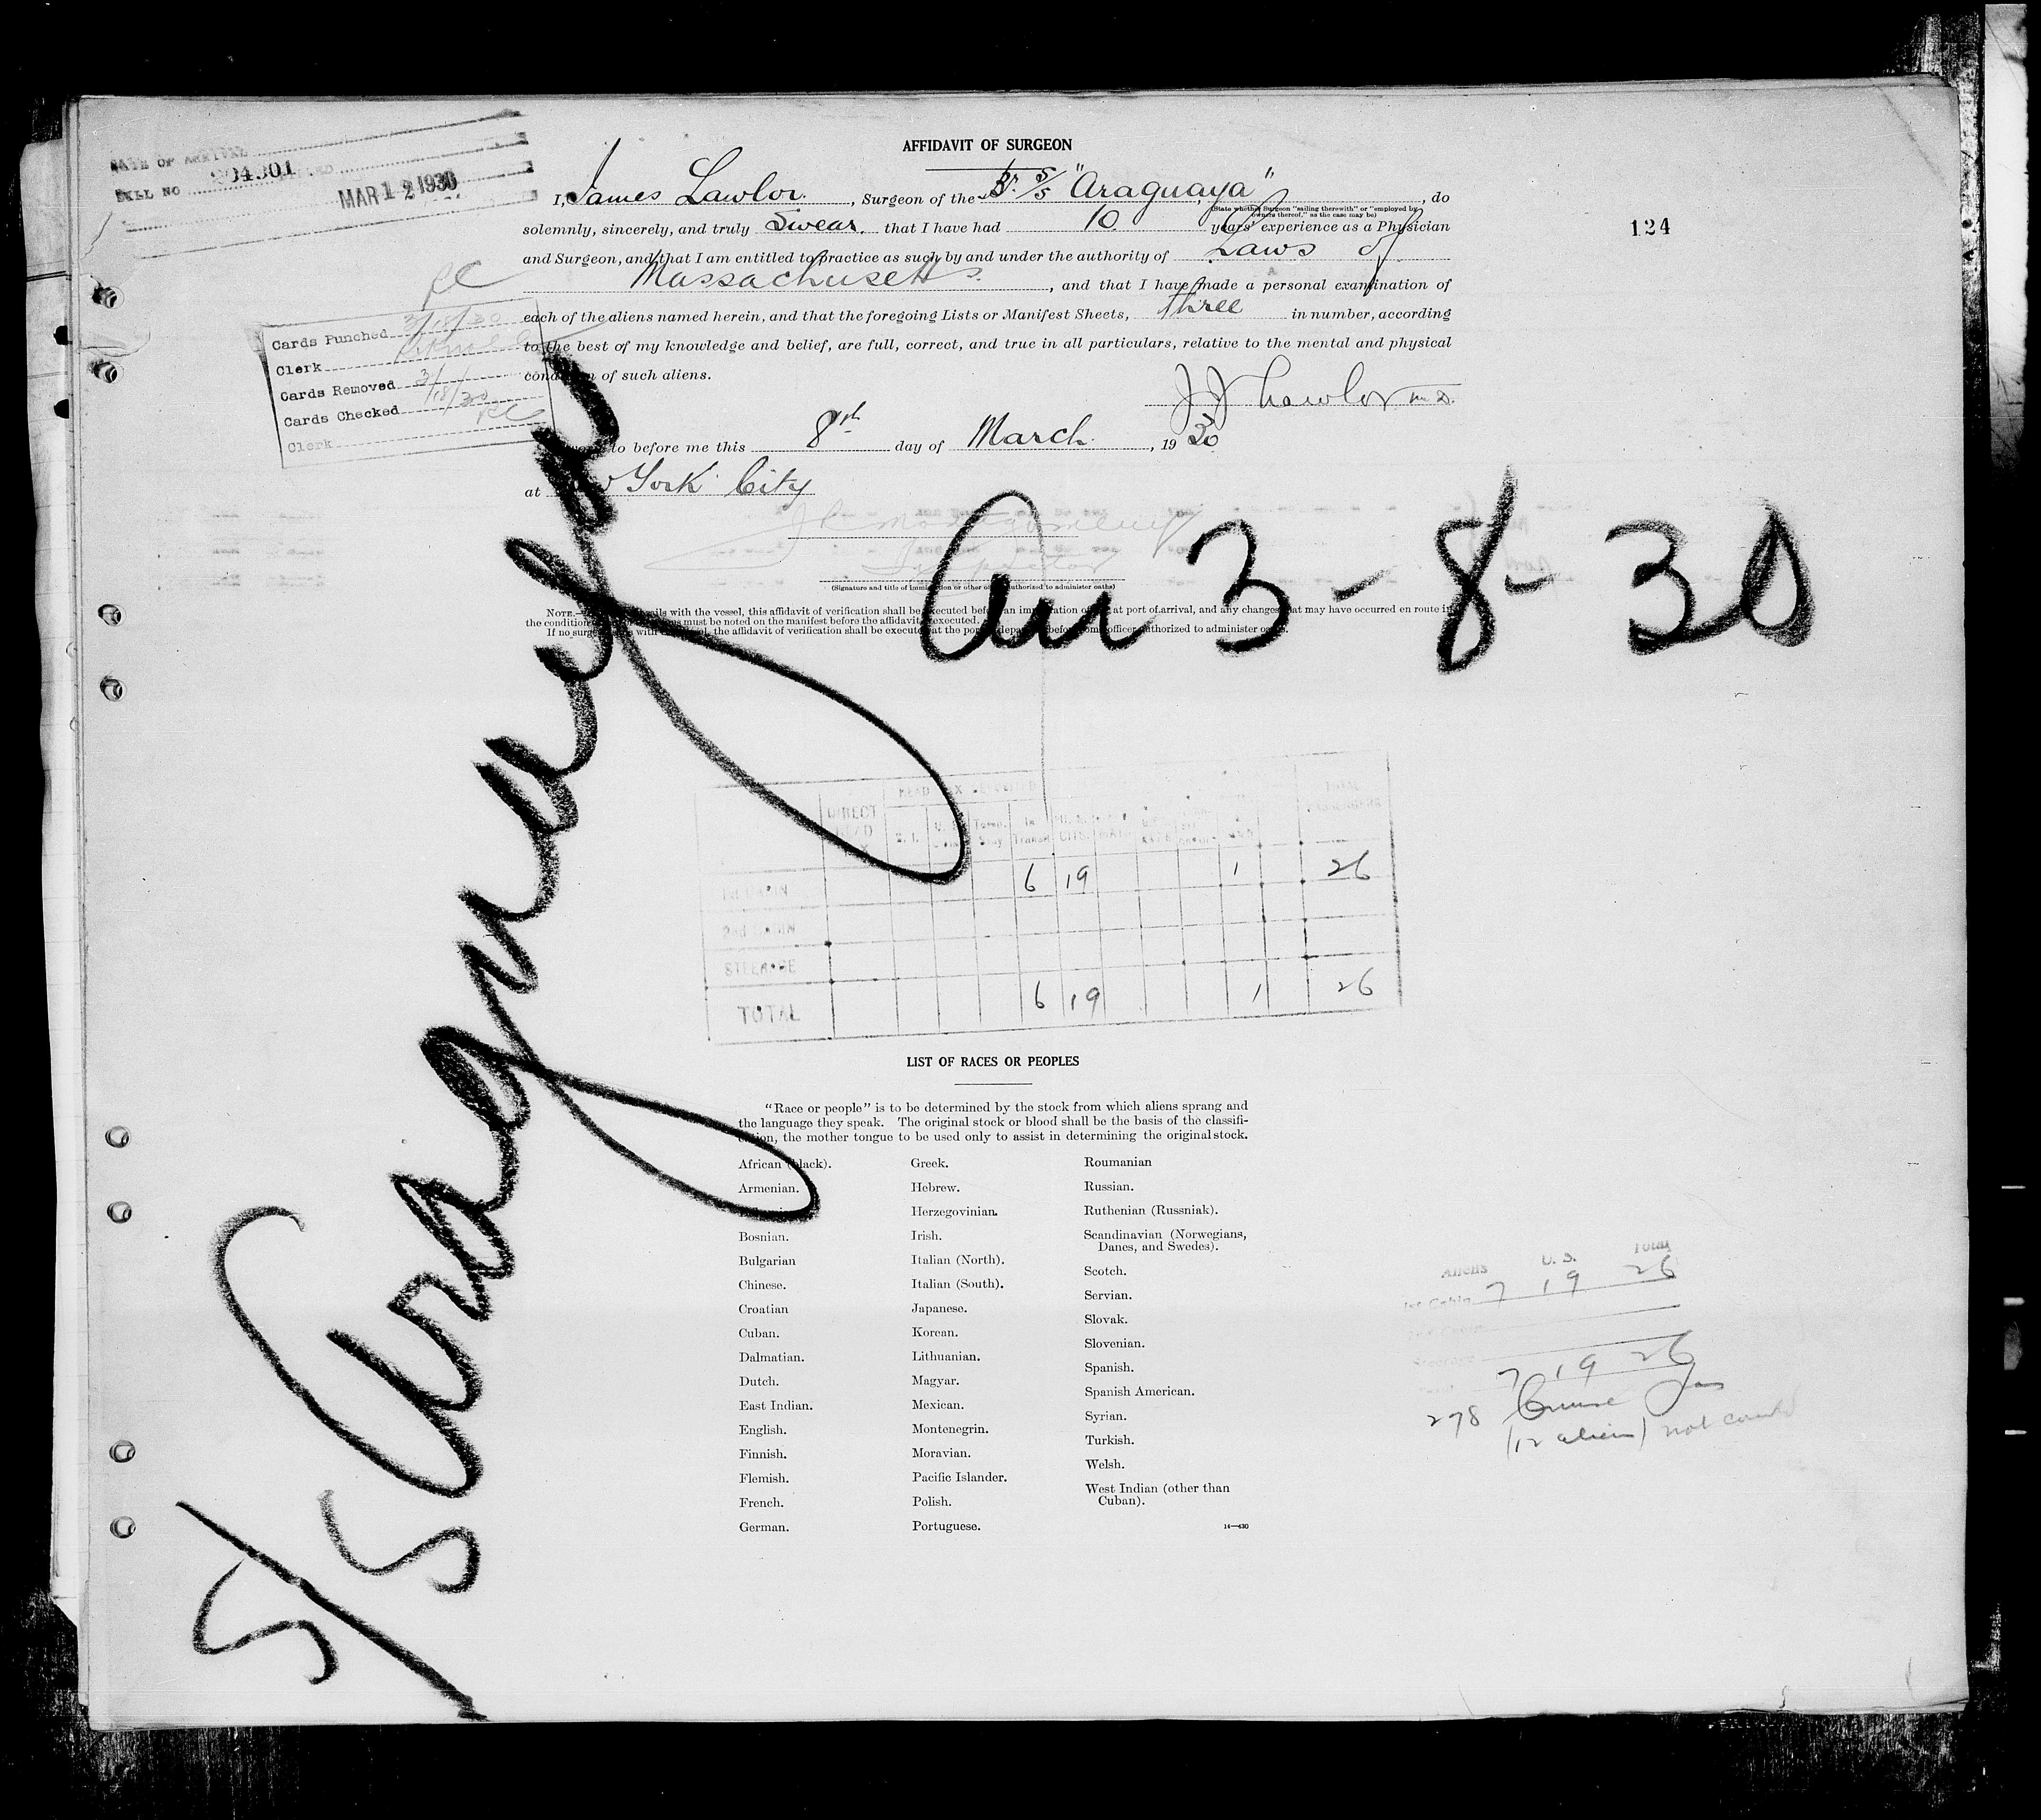 AFFIDAVIT OF SURGEON
DATE OF ARRIVAL
BILL NO
MAR 12 1930
I, James Lawlor, Surgeon of the Br. S/S "Araguaya", do
(State whether Surgeon "sailing therewith" or "employed by owners thereof," as the case may be)
solemnly, sincerely, and truly Swear that I have had 10 years' experience as a Physician
and Surgeon, and that I am entitled to practice as such by and under the authority of Laws of
Massachusetts, and that I have made a personal examination of
each of the aliens named herein, and that the foregoing Lists or Manifest Sheets, three in number, according
to the best of my knowledge and belief, are full, correct, and true in all particulars, relative to the mental and physical
condition of such aliens.
124
J J Lawlor M.D.
to before me this 8th day of March, 1930
at York City
Cards Punched 3/18/30
Clerk
Cards Removed 3/18/30
Cards Checked
Clerk
J R Montgomery
Inspector
(Signature and title of immigration or other officer authorized to administer oaths)
NOTE.— with the vessel, this affidavit of verification shall be executed before an immigration at port of arrival, and any changes that may have occurred en route in
the condition must be noted on the manifest before the affidavit executed.
If no surgeon with vessel, the affidavit of verification shall be executed at the port before some officer authorized to administer
Arr 3-8-30
S/S Araguaya
DIRECT HEAD TAX
In Transit
U.S. CITS.
TOTAL PASSENGERS
1st CABIN 6 19 1 26
2nd CABIN
STEERAGE
TOTAL 6 19 1 26
LIST OF RACES OR PEOPLES
"Race or people" is to be determined by the stock from which aliens sprang and
the language they speak. The original stock or blood shall be the basis of the classifi-
cation, the mother tongue to be used only to assist in determining the original stock.
African (black).
Armenian.
Bosnian.
Bulgarian
Chinese.
Croatian
Cuban.
Dalmatian.
Dutch.
East Indian.
English.
Finnish.
Flemish.
French.
German.
Greek.
Hebrew.
Herzegovinian.
Irish.
Italian (North).
Italian (South).
Japanese.
Korean.
Lithuanian.
Magyar.
Mexican.
Montenegrin.
Moravian.
Pacific Islander.
Polish.
Portuguese.
Roumanian
Russian.
Ruthenian (Russniak).
Scandinavian (Norwegians,
Danes, and Swedes).
Scotch.
Servian.
Slovak.
Slovenian.
Spanish.
Spanish American.
Syrian.
Turkish.
Welsh.
West Indian (other than
Cuban).
14—430
Aliens U. S. Total
1st Cabin 7 19 26
Steerage
7 19 26
278 Cruise
(12 aliens) not